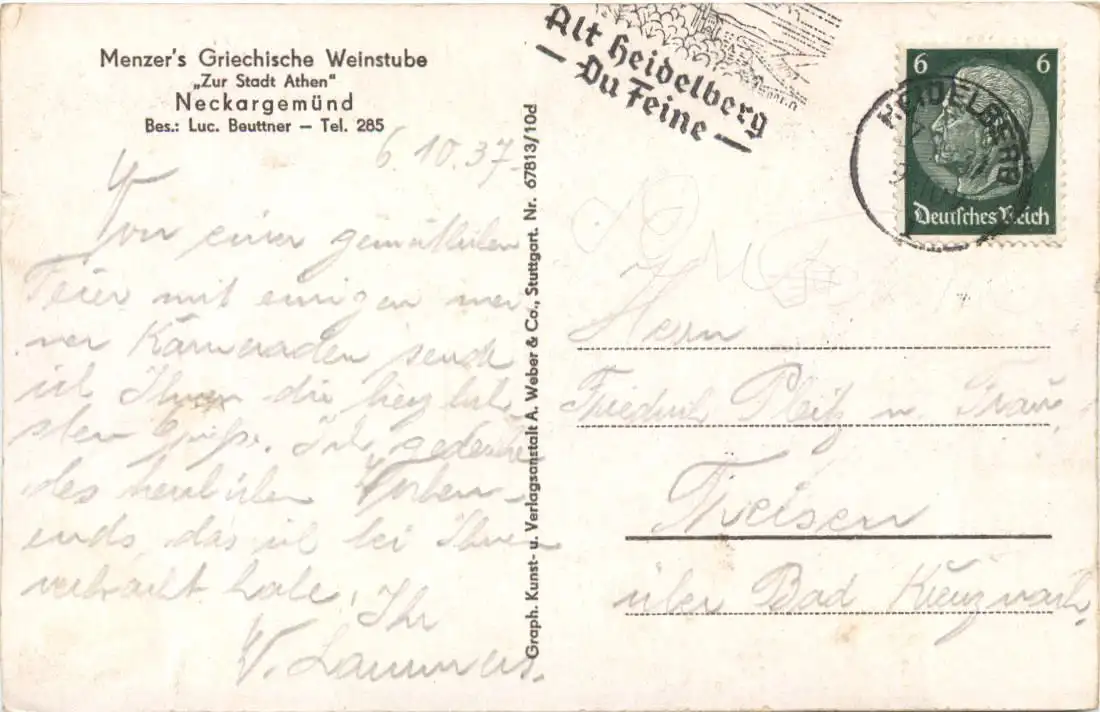 Menzer's Griechische Weinstube
„Zur Stadt Athen"
Neckargemünd
Bes.: Luc. Beuttner – Tel. 285
6.10.37.
Von einer gemütlichen
Feier mit einigen mei
ner Kameraden sende
ich Ihnen die herzlich
sten Grüße. Ich gedenke
des herrlichen
ends, das ich bei Ihnen
verbracht habe. Ihr
Graph. Kunst- u. Verlagsanstalt A. Weber & Co., Stuttgart. Nr. 67813/10d
Alt Heidelberg
Du Feine
6 6
HEIDELBERG
Deutsches Reich
Herrn
Friedrich u. Frau
über Bad Kreuznach